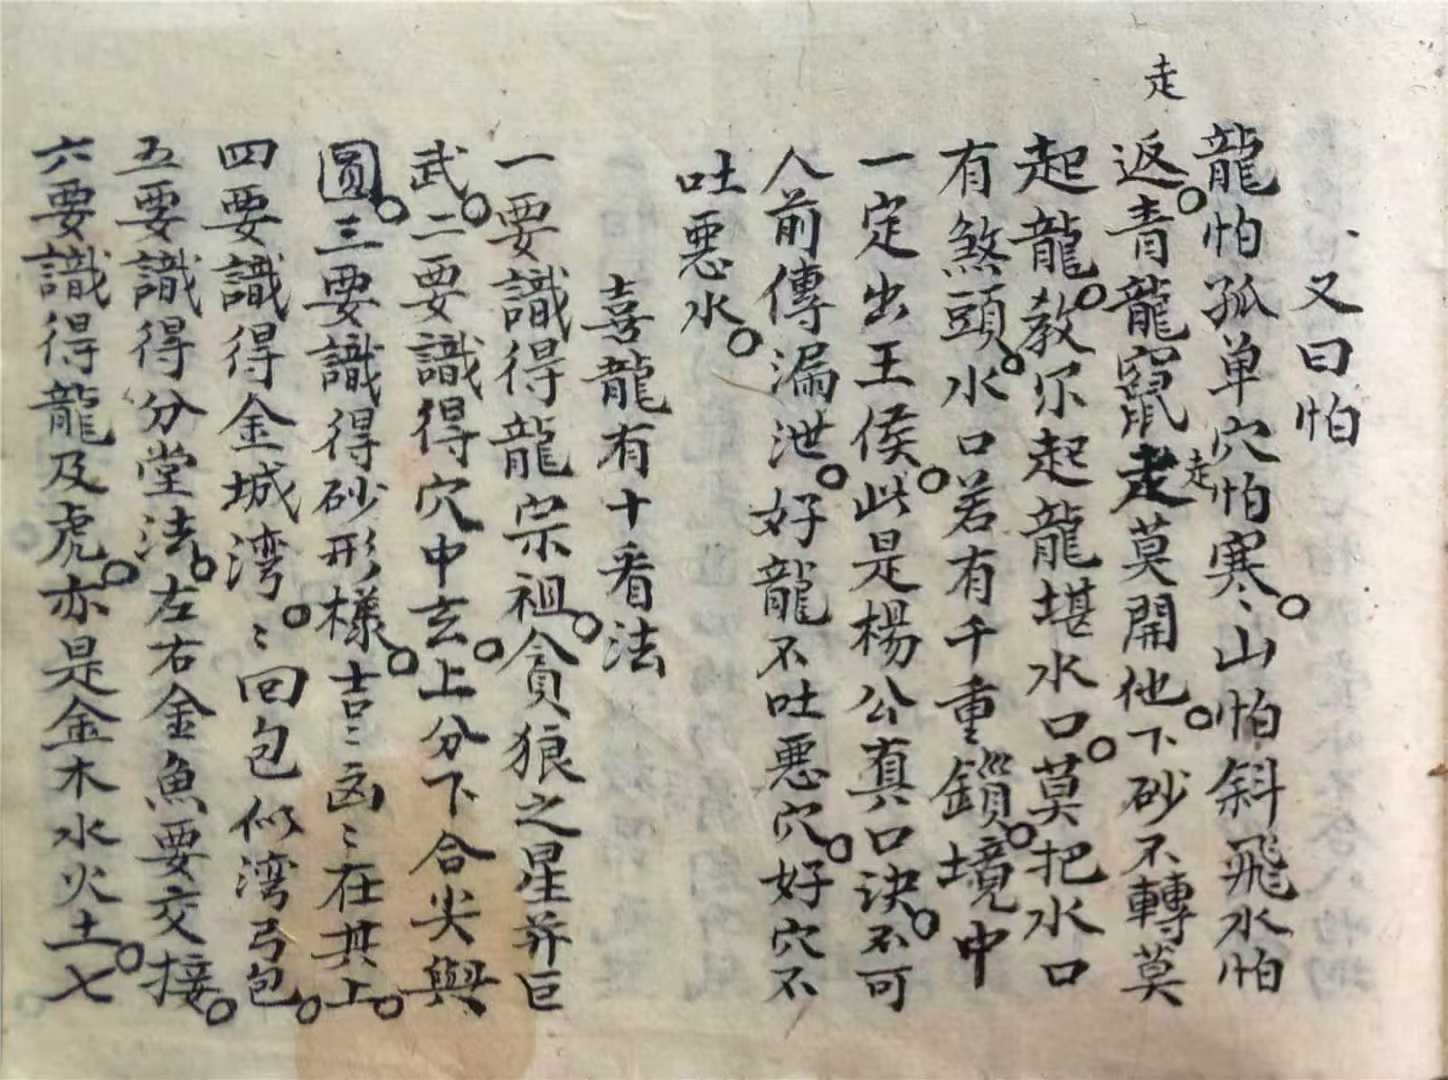 又曰怕
龍怕孤单穴怕寒。山怕斜飛水怕
走
返。青龍竄走莫開他。下砂不轉莫
走
起龍。教尔起龍堪水口。莫把水口
有煞頭。水口若有千重鎖。境中
一定出王侯。此是楊公真口诀。不可
人前傳漏泄。好龍不吐悪穴。好穴不
吐悪水。
喜龍有十看法
一要識得龍宗祖。貪狼之星并巨
武。二要識得穴中玄。上分下合尖與
圆。三要識得砂形樣。吉〻凶〻在其上。
四要識得金城湾。〻回包似湾弓包。
五要識得分堂法。左右金魚要交接。
六要識得龍及虎。亦是金木水火土。七